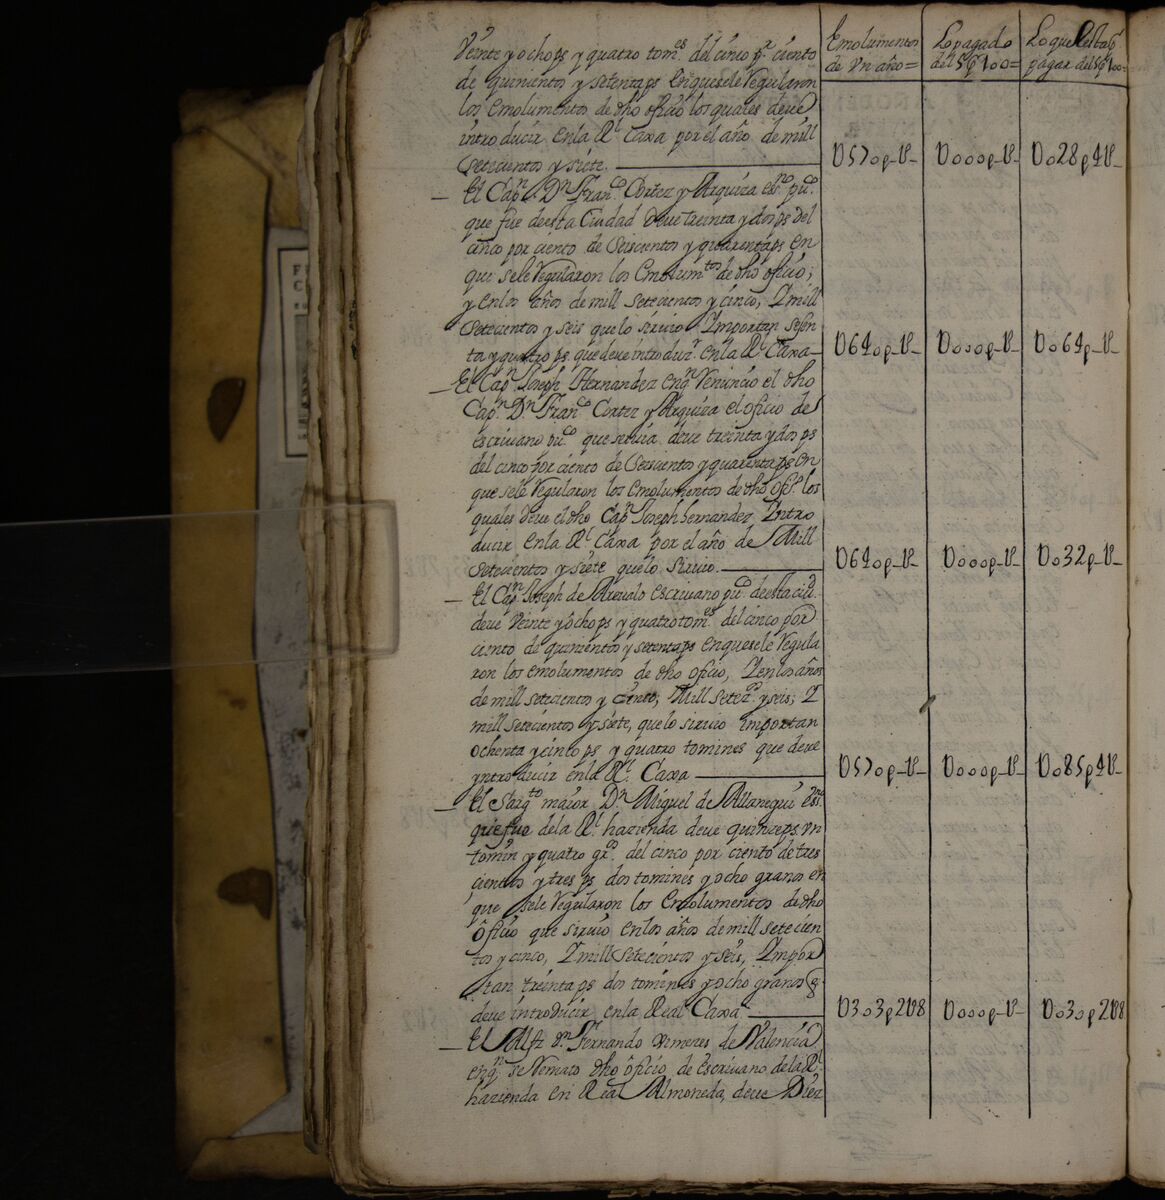 Emolumentos de Vn año=
Lo pagado del 5 p 100=
Lo que resta p pagar del 5 p 100=
Veinte y ocho ps y quatro tom.es del cinco p.r ciento
de quinientos y setenta ps en que se le Regularon
los emolumentos de dho oficio los quales deve
introducir en la R.l Caxa por el año de mill
setecientos y siete.
U570p_U_ U000p_U_ U028p4U_
El Cap.n D.n Fran.co Cortez y Arquiza es.no pu.co
que fue de esta Ciudad deve treinta y dos ps del
cinco por ciento de seiscientos y quarenta ps en
que se le Regularon los emolum.tos de dho oficio;
y en los años de mill setecientos y cinco, Y mill
setecientos y seis que lo sirvio Ymportan sesen
ta y quatro ps. que deve introduz.r en la R.l Caxa_
U640p_U_ U000p_U_ U064p_U_
El Cap.n Joseph Hernandez en q.n Renuncio el dho
Cap.n D.n Fran.co Cortez y Arquiza el oficio de
escrivano pu.co que servia deve treinta y dos ps
del cinco por ciento de seiscientos y quarenta ps en
que se le Regularon los emolumentos de dho ofi.o los
quales deve el dho Cap.n Joseph hernandez Yntro
ducir en la R.l Caxa por el año de Mill
setecientos y siete que lo sirvio.
U640p_U_ U000p_U_ U032p_U_
El Cap.n Joseph de Arevalo escrivano pu.co de esta ciu.d
deve Veinte y ocho ps y quatro tom.es del cinco por
ciento de quinientos y setenta ps en que se le Regula
ron los emolumentos de dho oficio, Y en los años
de mill setecientos y cinco, Mill setez.os y seis; Y
mill setecientos y siete, que lo sirvio importan
ochenta y cinco ps y quatro tomines que deve
yntroducir en la R.l Caxa
U570p_U_ U000p_U_ U085p4U_
El Sarg.to maior D.n Miguel de Allanegui es.no
que fue de la R.l hazienda deve quinze ps vn
tomin y quatro gr.os del cinco por ciento de tres
cientos y tres ps dos tomines y ocho granos en
que se le Regularon los Emolumentos de dho
oficio que sirvio en los años de mill setecien
tos y cinco, Y mill setecientos y seis, Ympor
tan treinta ps dos tomines y ocho granos q.
deve introducir en la Real Caxa
U303p2U8 U000p_U_ U030p2U8
El Alf.z D.n Fernando Ximenes de Valencia
en q.n se Remato dho oficio de escrivano de la R.l
hazienda en Real Almoneda, deve Diez